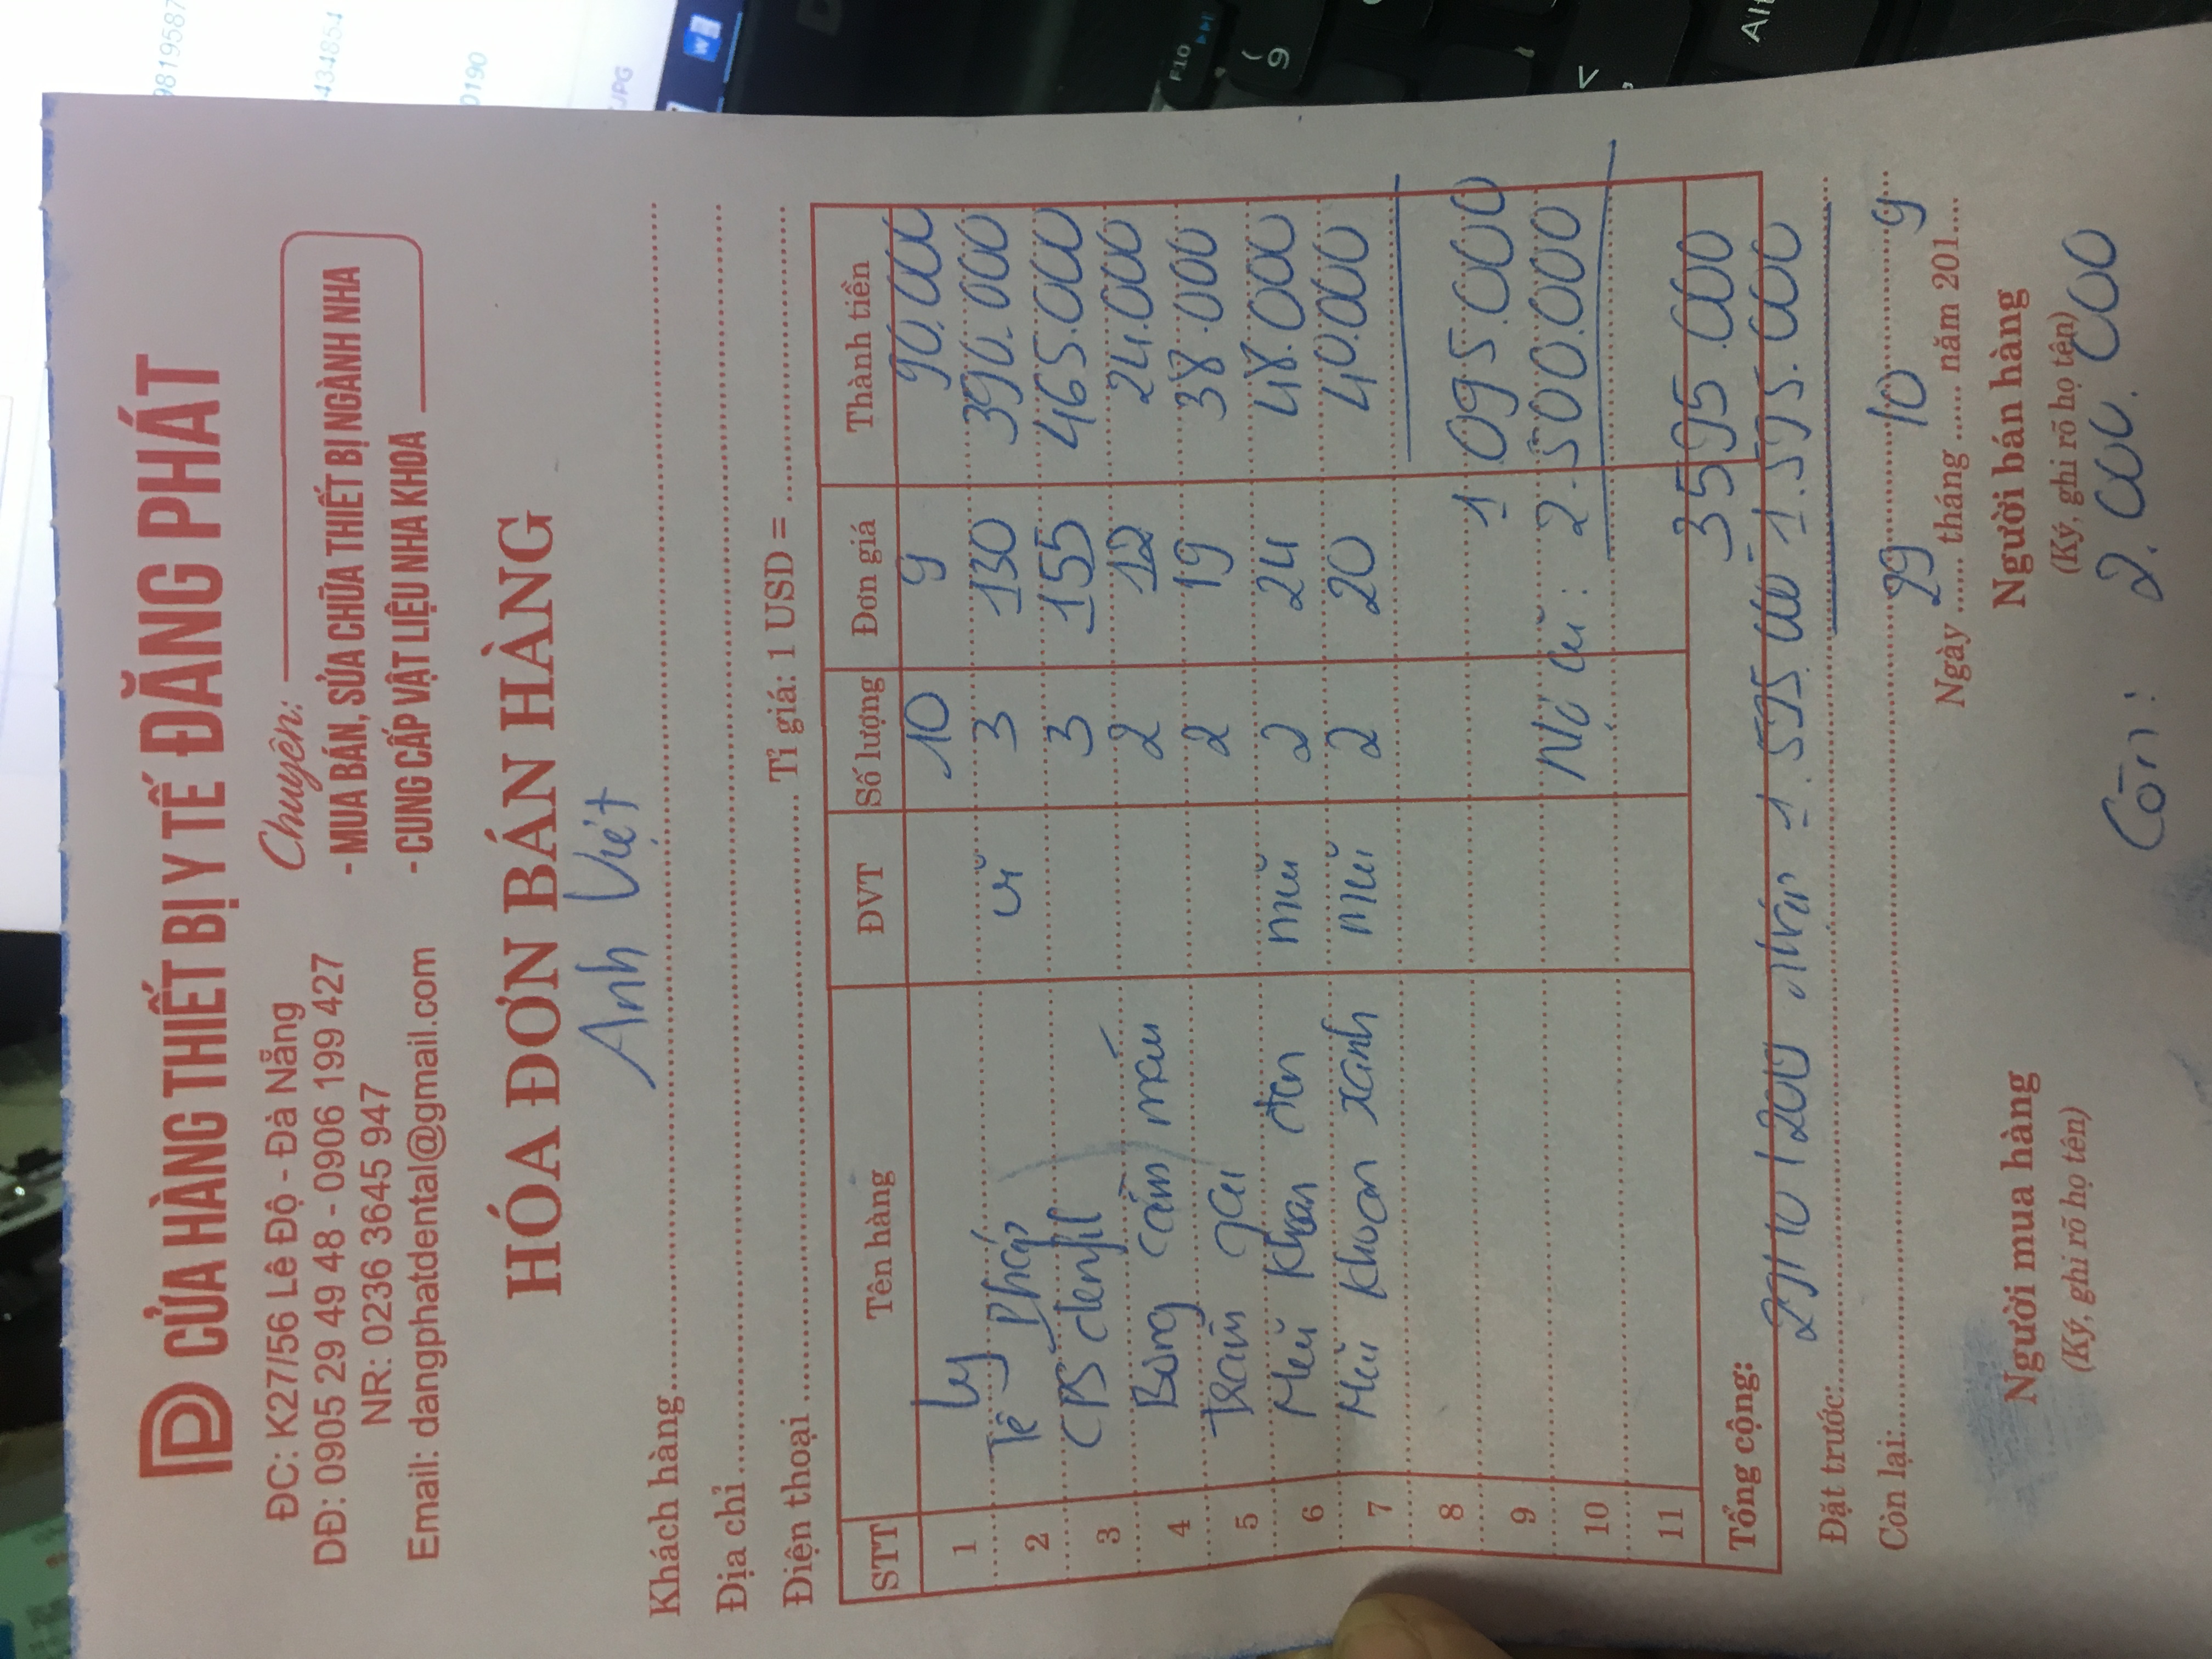 CỬA HÀNG THIẾT BỊ Y TẾ ĐĂNG PHÁT
ĐC: K27/56 Lê Độ - Đà Nẵng
DĐ: 0905 29 49 48 - 0906 199 427
NR: 0236 3645 947
Email: dangphatdental@gmail.com
Chuyên:
- MUA BÁN, SỬA CHỮA THIẾT BỊ NGÀNH NHA
- CUNG CẤP VẬT LIỆU NHA KHOA
HÓA ĐƠN BÁN HÀNG
Khách hàng Anh Việt
Địa chỉ
Điện thoại Tỉ giá: 1 USD =
STT Tên hàng ĐVT Số lượng Đơn giá Thành tiền
1 Ly 10 9 90.000
2 Tê Pháp vĩ 3 130 390.000
3 CPS denfil 3 155 465.000
4 Bông cầm máu 2 12 24.000
5 trâm gai 2 19 38.000
6 Mũi khoan đen mũi 2 24 48.000
7 Mũi khoan xanh mũi 2 20 40.000
8
9 1.095.000
10 Nợ cũ: 2.500.000
11
Tổng cộng: 3595.000
Đặt trước: 29/10/2019 1.595.000 1.595.000
Còn lại:
Ngày 29 tháng 10 năm 2019
Người mua hàng Người bán hàng
(Ký, ghi rõ họ tên) (Ký, ghi rõ họ tên)
Còn: 2.000.000
9819587
434854
0190
.JPG
F10
(
9
<
,
Alt